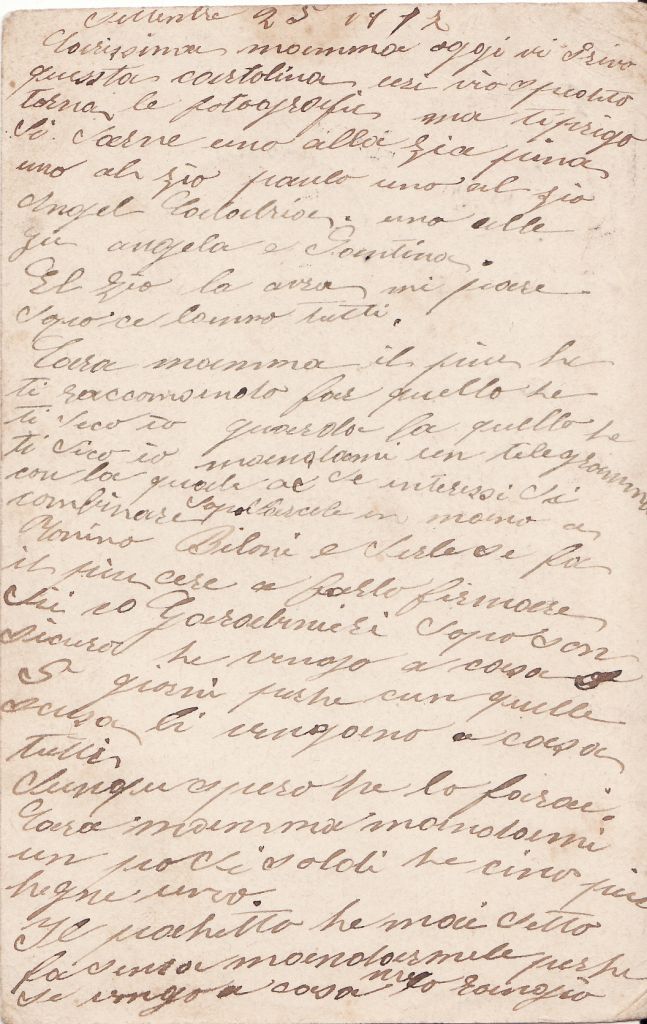 settembre 25 1917
Carissima mamma oggi vi scrivo
questa cartolina
torna le fotografie ma ti prigo
di darne uno alla zia pina
uno al zio paulo uno al zio
Angel Calabria. uno alle
zie angela e Santina
El zio la avra mi pare
dopo ce lanno tutti.
Cara mamma il piu he
ti raccomando far quello he
ti dico io guarda fa quello he
ti dico io mandami un telegramma
con la quale ae se interessi di
combinare dopo in mano a
Tonino Biloni e se fa
il piacere a farlo firmare
dai Carabinieri dopo son
sicuro he vengo a casa
5 giorni perhe cun quelle
scusa li vengono a casa
tutti
dunqu spero he lo farai.
Cara mamma mandami
un po di soldi he cino piu
hegne uno.
Il pahetto he mai detto
fa senza mandarmele perhe
se vengo a casa lo rangio